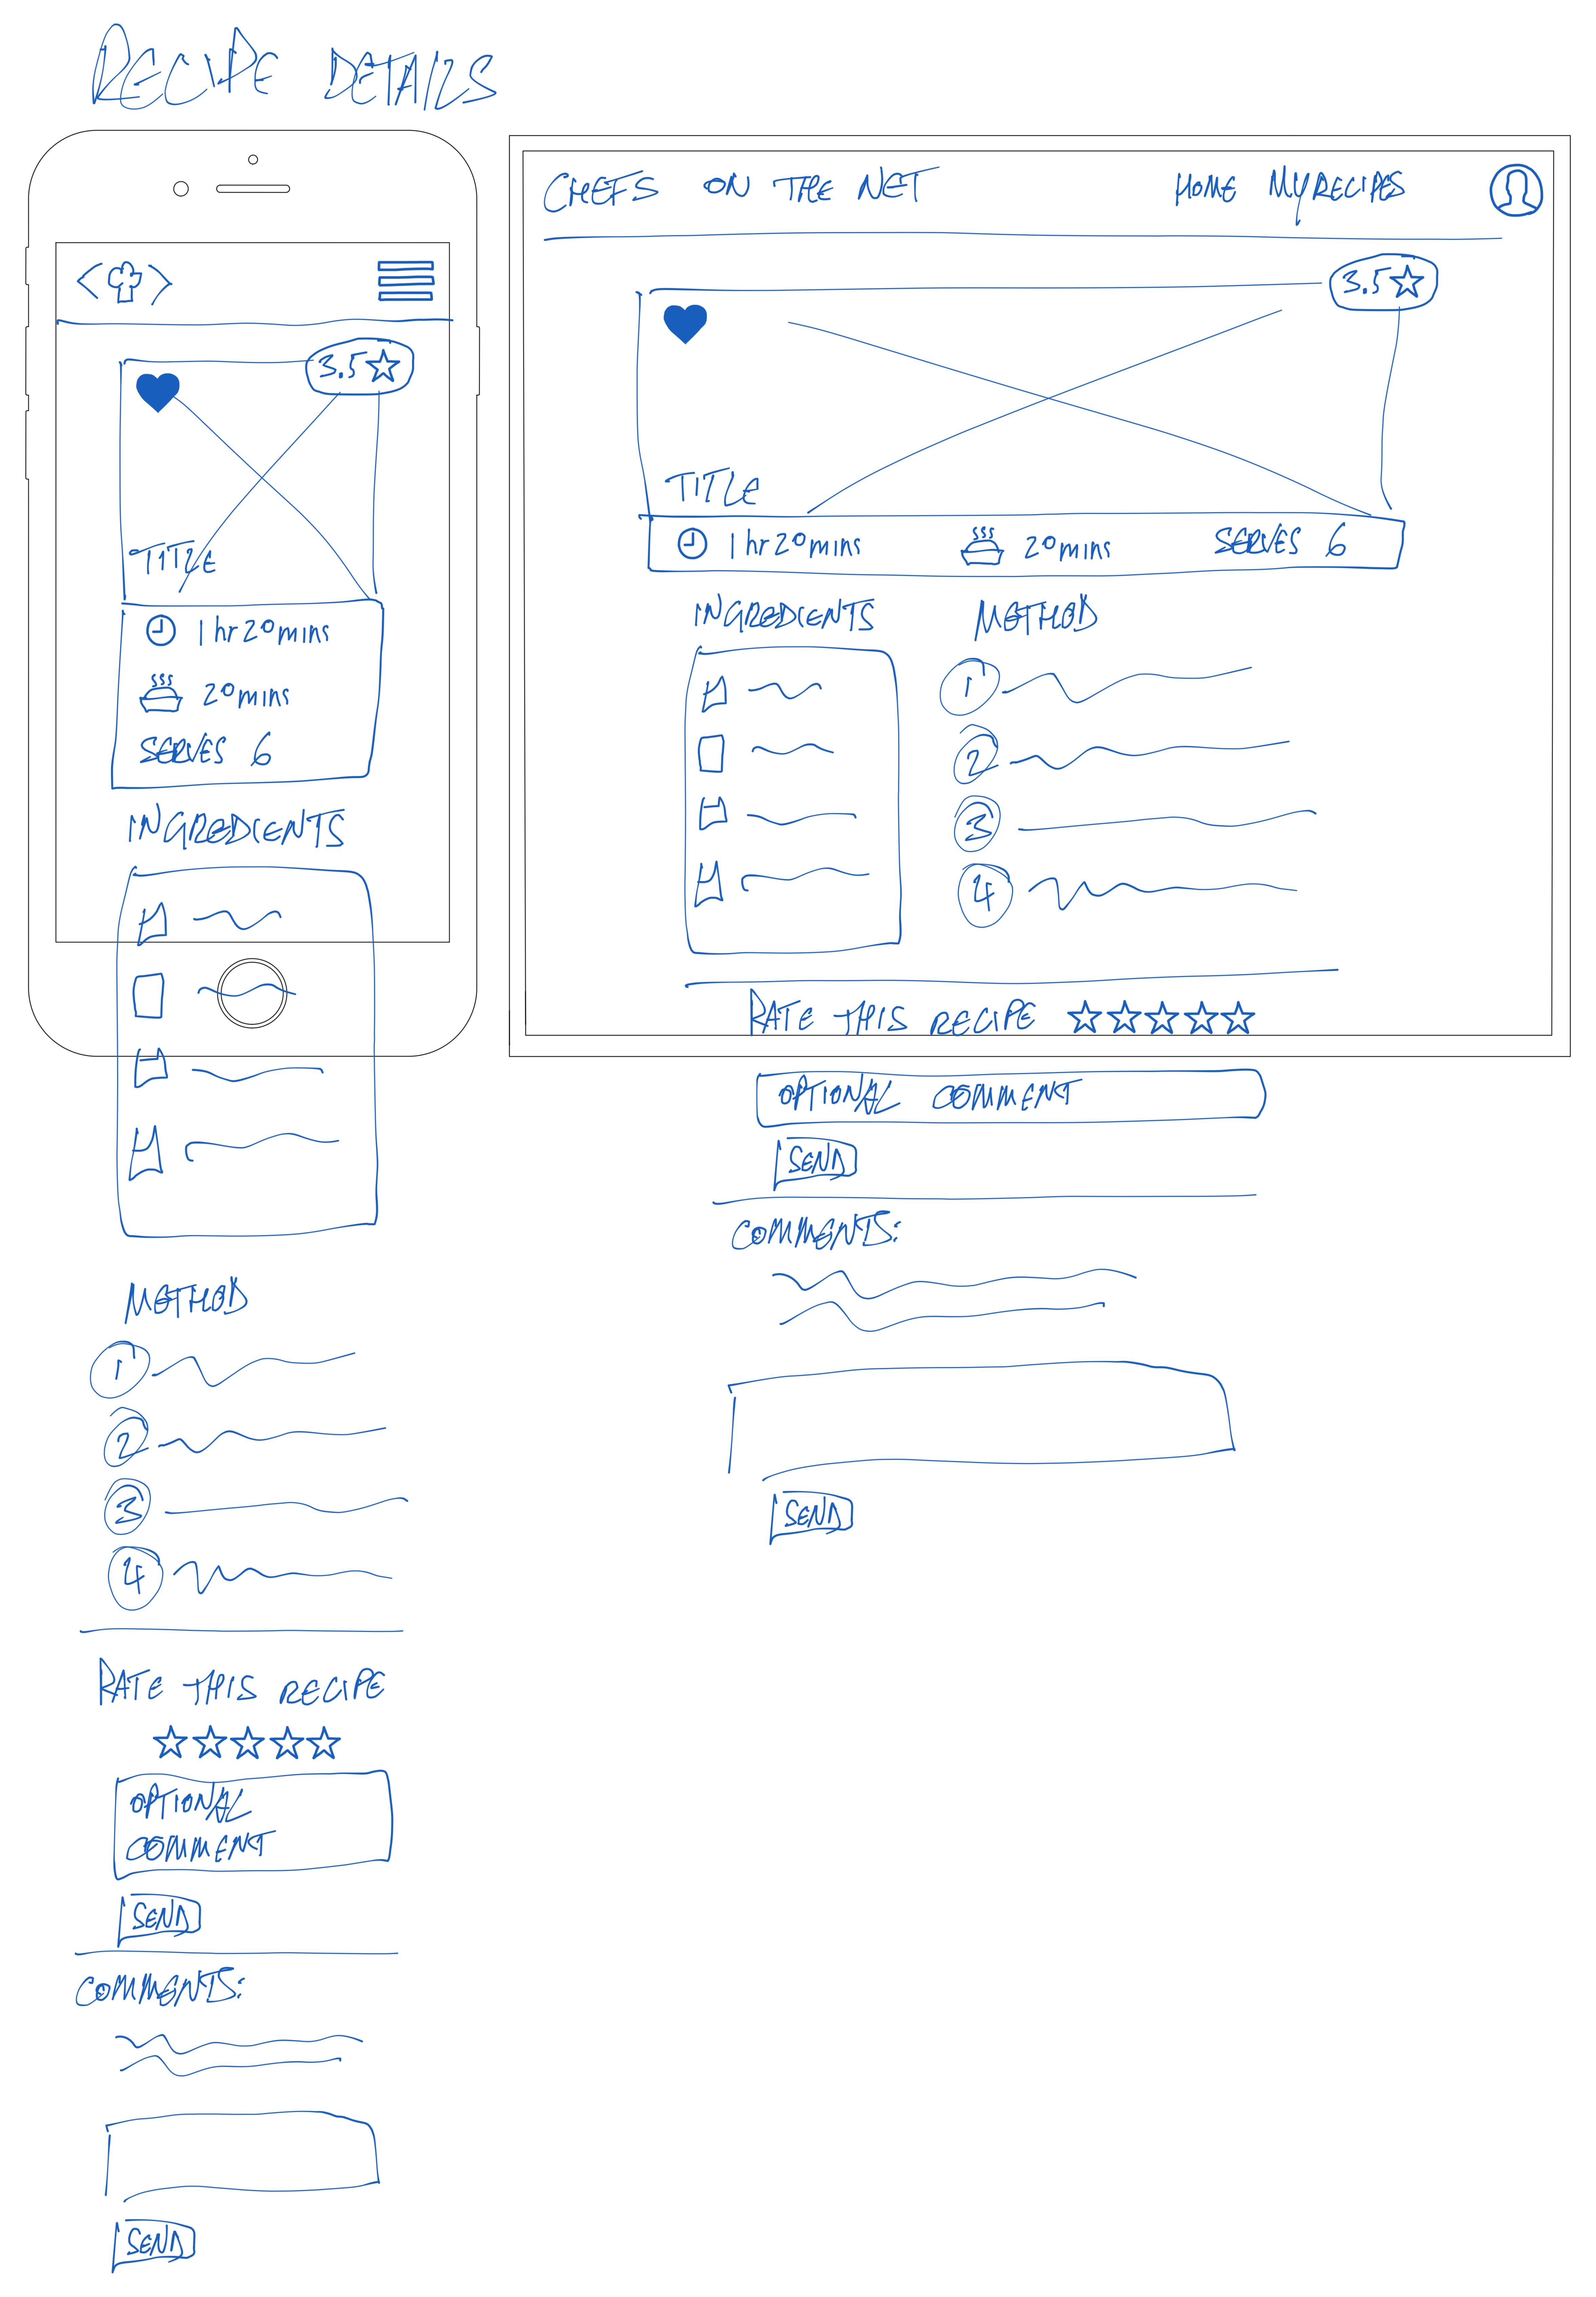 RECIPE DETAILS
3.5
TITLE
1 hr 20 mins
20 mins
SERVES 6
INGREDIENTS
METHOD
1
2
3
4
RATE THIS RECIPE
OPTIONAL
COMMENT
SEND
COMMENTS:
SEND
CHEFS ON THE NET HOME MY RECIPES
3.5
TITLE
1 hr 20 mins 20 mins SERVES 6
INGREDIENTS METHOD
1
2
3
4
RATE THIS RECIPE
OPTIONAL COMMENT
SEND
COMMENTS:
SEND